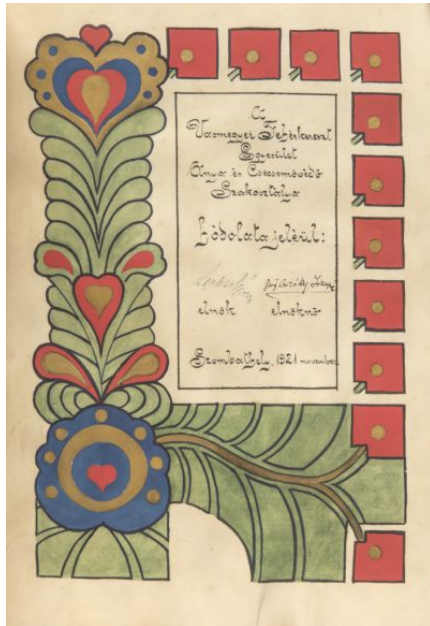 A
Vasmegyei Fehérkereszt
Egyesület
Anya és Csecsemővédő
Szakosztálya
Hódolata jeléül:
elnök elnöknő
Szombathely, 1921 november